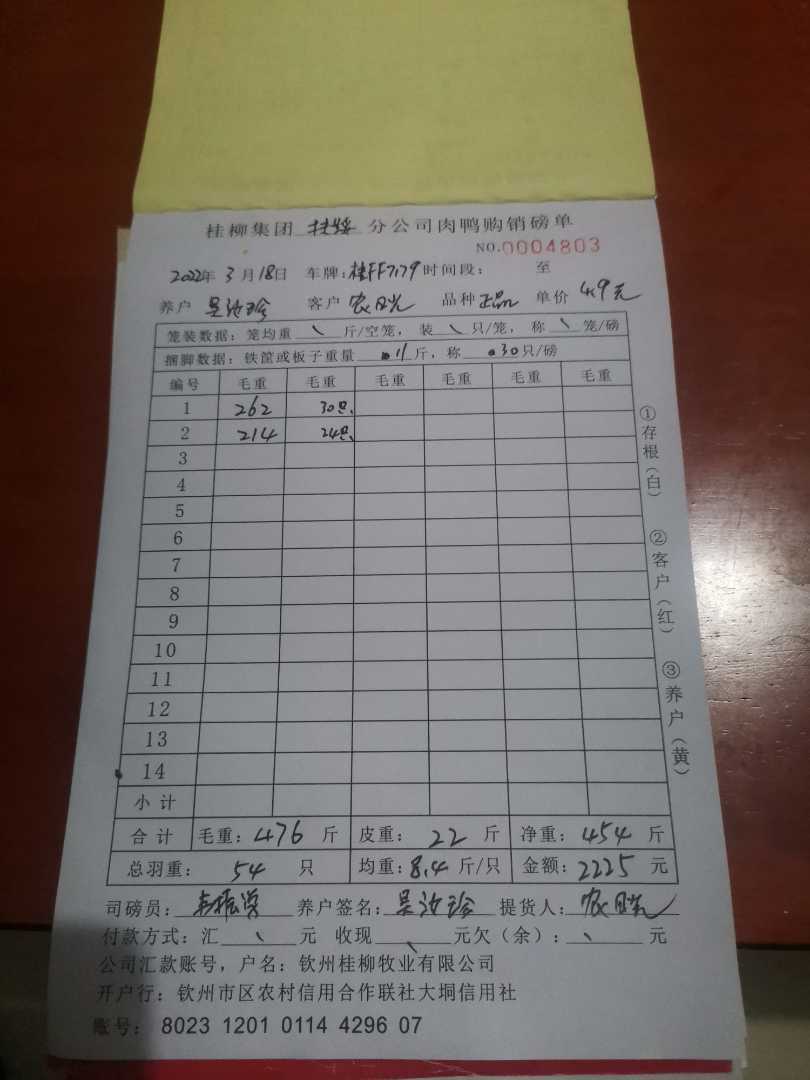 桂柳集团 扶绥 分公司肉鸭购销磅单
NO.0004803
2022年 3 月 18日 车牌:桂FF7179 时间段: 至
养户 吴汝珍 客户 农日光 品种 正品 单价 4.9元
笼装数据:笼均重 斤/空笼,装 只/笼,称 笼/磅
捆脚数据:铁筐或板子重量 11斤,称 30只/磅
编号 毛重 毛重 毛重 毛重 毛重 毛重
1 262 30只
2 214 24只
3
4
5
6
7
8
9
10
11
12
13
14
小计
合计 毛重:476 斤 皮重:22 斤 净重:454 斤
总羽重:54 只 均重:8.4 斤/只 金额:2225 元
司磅员: 养户签名:吴汝珍 提货人:农日光
付款方式:汇 元 收现 元欠(余): 元
公司汇款账号,户名:钦州桂柳牧业有限公司
开户行:钦州市区农村信用合作联社大垌信用社
账号:8023 1201 0114 4296 07
①存根(白) ②客户(红) ③养户(黄)